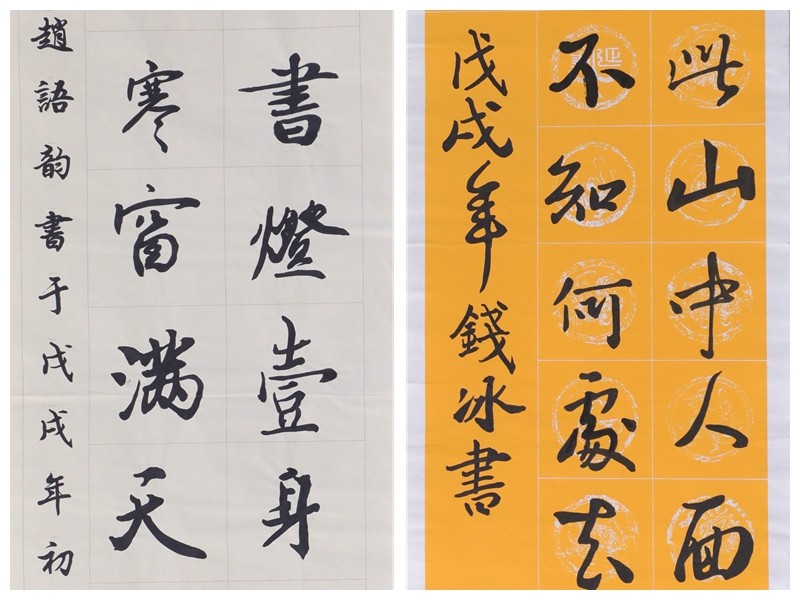 書燈壹身
寒窗满天
趙語韵書于戊戌年初
此山中人面
不知何處去
戊戌年錢冰書